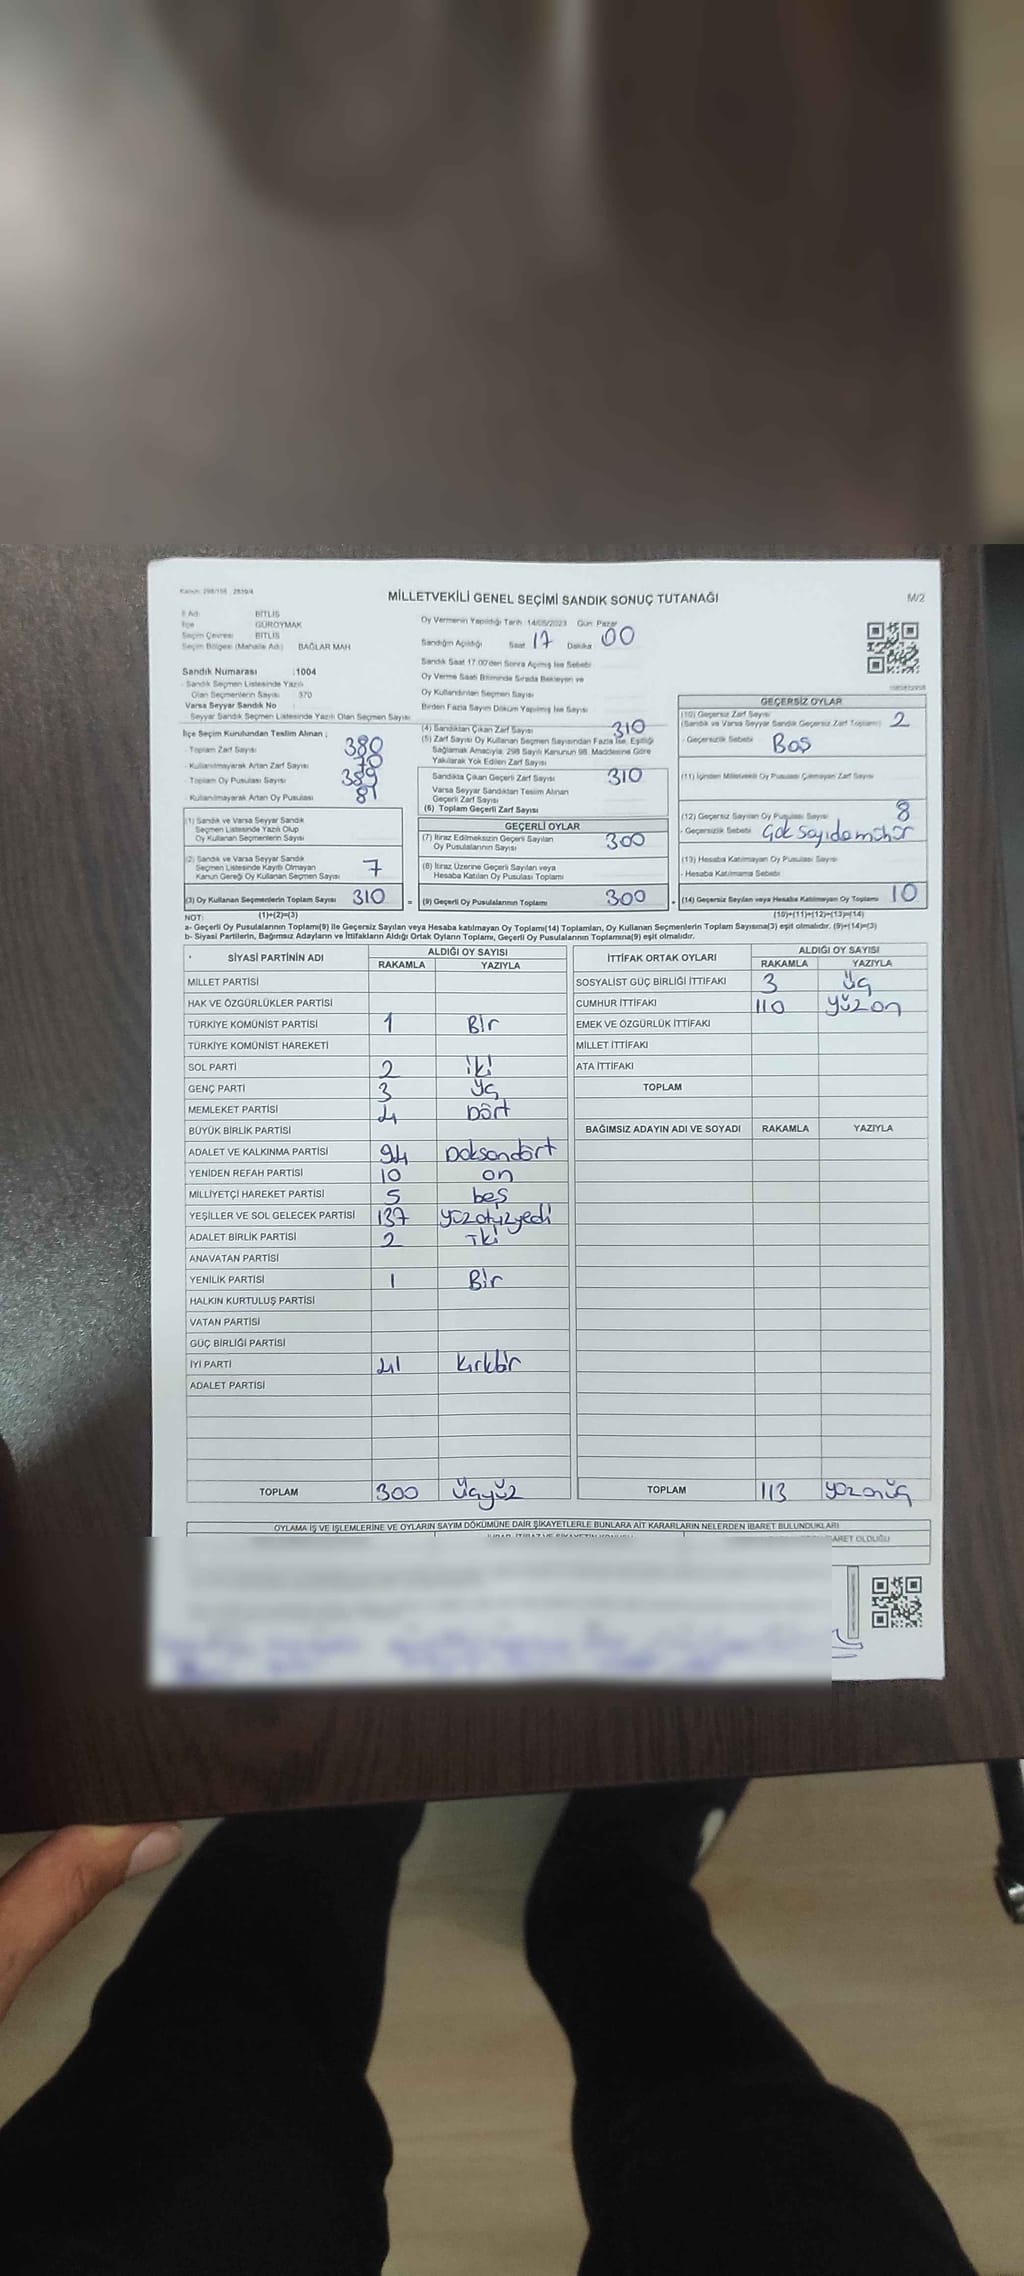 Kanun: 298/156 2839/4
MİLLETVEKİLİ GENEL SEÇİMİ SANDIK SONUÇ TUTANAĞI
M/2
İl Adı BİTLİS
İlçe GÜROYMAK
Seçim Çevresi BİTLİS
Seçim Bölgesi (Mahalle Adı) BAĞLAR MAH
Sandık Numarası :1004
- Sandık Seçmen Listesinde Yazılı
Olan Seçmenlerin Sayısı 370
Varsa Seyyar Sandık No
Seyyar Sandık Seçmen Listesinde Yazılı Olan Seçmen Sayısı
İlçe Seçim Kurulundan Teslim Alınan ;
- Toplam Zarf Sayısı 380
- Kullanılmayarak Artan Zarf Sayısı 70
- Toplam Oy Pusulası Sayısı
- Kullanılmayarak Artan Oy Pusulası 81
(1) Sandık ve Varsa Seyyar Sandık
Seçmen Listesinde Yazılı Olup
Oy Kullanan Seçmenlerin Sayısı
(2) Sandık ve Varsa Seyyar Sandık
Seçmen Listesinde Kayıtlı Olmayan
Kanun Gereği Oy Kullanan Seçmen Sayısı 7
(3) Oy Kullanan Seçmenlerin Toplam Sayısı 310
Oy Vermenin Yapıldığı Tarih :14/05/2023 Gün: Pazar
Sandığın Açıldığı Saat 17 Dakika 00
Sandık Saat 17.00'den Sonra Açılmış İse Sebebi
Oy Verme Saati Bitiminde Sırada Bekleyen ve
Oy Kullandırılan Seçmen Sayısı
Birden Fazla Sayım Döküm Yapılmış İse Sayısı
(4) Sandıktan Çıkan Zarf Sayısı 310
(5) Zarf Sayısı Oy Kullanan Seçmen Sayısından Fazla İse, Eşitliği
Sağlamak Amacıyla, 298 Sayılı Kanunun 98. Maddesine Göre
Yakılarak Yok Edilen Zarf Sayısı
Sandıkta Çıkan Geçerli Zarf Sayısı 310
Varsa Seyyar Sandıktan Teslim Alınan
Geçerli Zarf Sayısı
(6) Toplam Geçerli Zarf Sayısı
GEÇERLİ OYLAR
(7) İtiraz Edilmeksizin Geçerli Sayılan
Oy Pusulalarının Sayısı 300
(8) İtiraz Üzerine Geçerli Sayılan veya
Hesaba Katılan Oy Pusulası Toplamı
= (9) Geçerli Oy Pusulalarının Toplamı 300
GEÇERSİZ OYLAR
(10) Geçersiz Zarf Sayısı
(Sandık ve Varsa Seyyar Sandık Geçersiz Zarf Toplamı) 2
- Geçersizlik Sebebi Boş
(11) İçinden Milletvekili Oy Pusulası Çıkmayan Zarf Sayısı
(12) Geçersiz Sayılan Oy Pusulası Sayısı 8
- Geçersizlik Sebebi Çok sayıda mühür
(13) Hesaba Katılmayan Oy Pusulası Sayısı
- Hesaba Katılmama Sebebi
+ (14) Geçersiz Sayılan veya Hesaba Katılmayan Oy Toplamı 10
NOT: (1)+(2)=(3) (10)+(11)+(12)+(13)=(14)
a- Geçerli Oy Pusulalarının Toplamı(9) ile Geçersiz Sayılan veya Hesaba katılmayan Oy Toplamı(14) Toplamları, Oy Kullanan Seçmenlerin Toplam Sayısına(3) eşit olmalıdır. (9)+(14)=(3)
b- Siyasi Partilerin, Bağımsız Adayların ve İttifakların Aldığı Ortak Oyların Toplamı, Geçerli Oy Pusulalarının Toplamına(9) eşit olmalıdır.
SİYASİ PARTİNİN ADI ALDIĞI OY SAYISI
RAKAMLA YAZIYLA
MİLLET PARTİSİ
HAK VE ÖZGÜRLÜKLER PARTİSİ
TÜRKİYE KOMÜNİST PARTİSİ 1 Bir
TÜRKİYE KOMÜNİST HAREKETİ
SOL PARTİ 2 iki
GENÇ PARTİ 3 üç
MEMLEKET PARTİSİ 4 Dört
BÜYÜK BİRLİK PARTİSİ
ADALET VE KALKINMA PARTİSİ 94 Doksandört
YENİDEN REFAH PARTİSİ 10 on
MİLLİYETÇİ HAREKET PARTİSİ 5 beş
YEŞİLLER VE SOL GELECEK PARTİSİ 137 yüzotuzyedi
ADALET BİRLİK PARTİSİ 2 iki
ANAVATAN PARTİSİ
YENİLİK PARTİSİ 1 Bir
HALKIN KURTULUŞ PARTİSİ
VATAN PARTİSİ
GÜÇ BİRLİĞİ PARTİSİ
İYİ PARTİ 41 kırkbir
ADALET PARTİSİ
TOPLAM 300 üçyüz
İTTİFAK ORTAK OYLARI ALDIĞI OY SAYISI
RAKAMLA YAZIYLA
SOSYALİST GÜÇ BİRLİĞİ İTTİFAKI 3 üç
CUMHUR İTTİFAKI 110 yüzon
EMEK VE ÖZGÜRLÜK İTTİFAKI
MİLLET İTTİFAKI
ATA İTTİFAKI
TOPLAM
BAĞIMSIZ ADAYIN ADI VE SOYADI RAKAMLA YAZIYLA
TOPLAM 113 yüzonüç
OYLAMA İŞ VE İŞLEMLERİNE VE OYLARIN SAYIM DÖKÜMÜNE DAİR ŞİKAYETLERLE BUNLARA AİT KARARLARIN NELERDEN İBARET BULUNDUKLARI